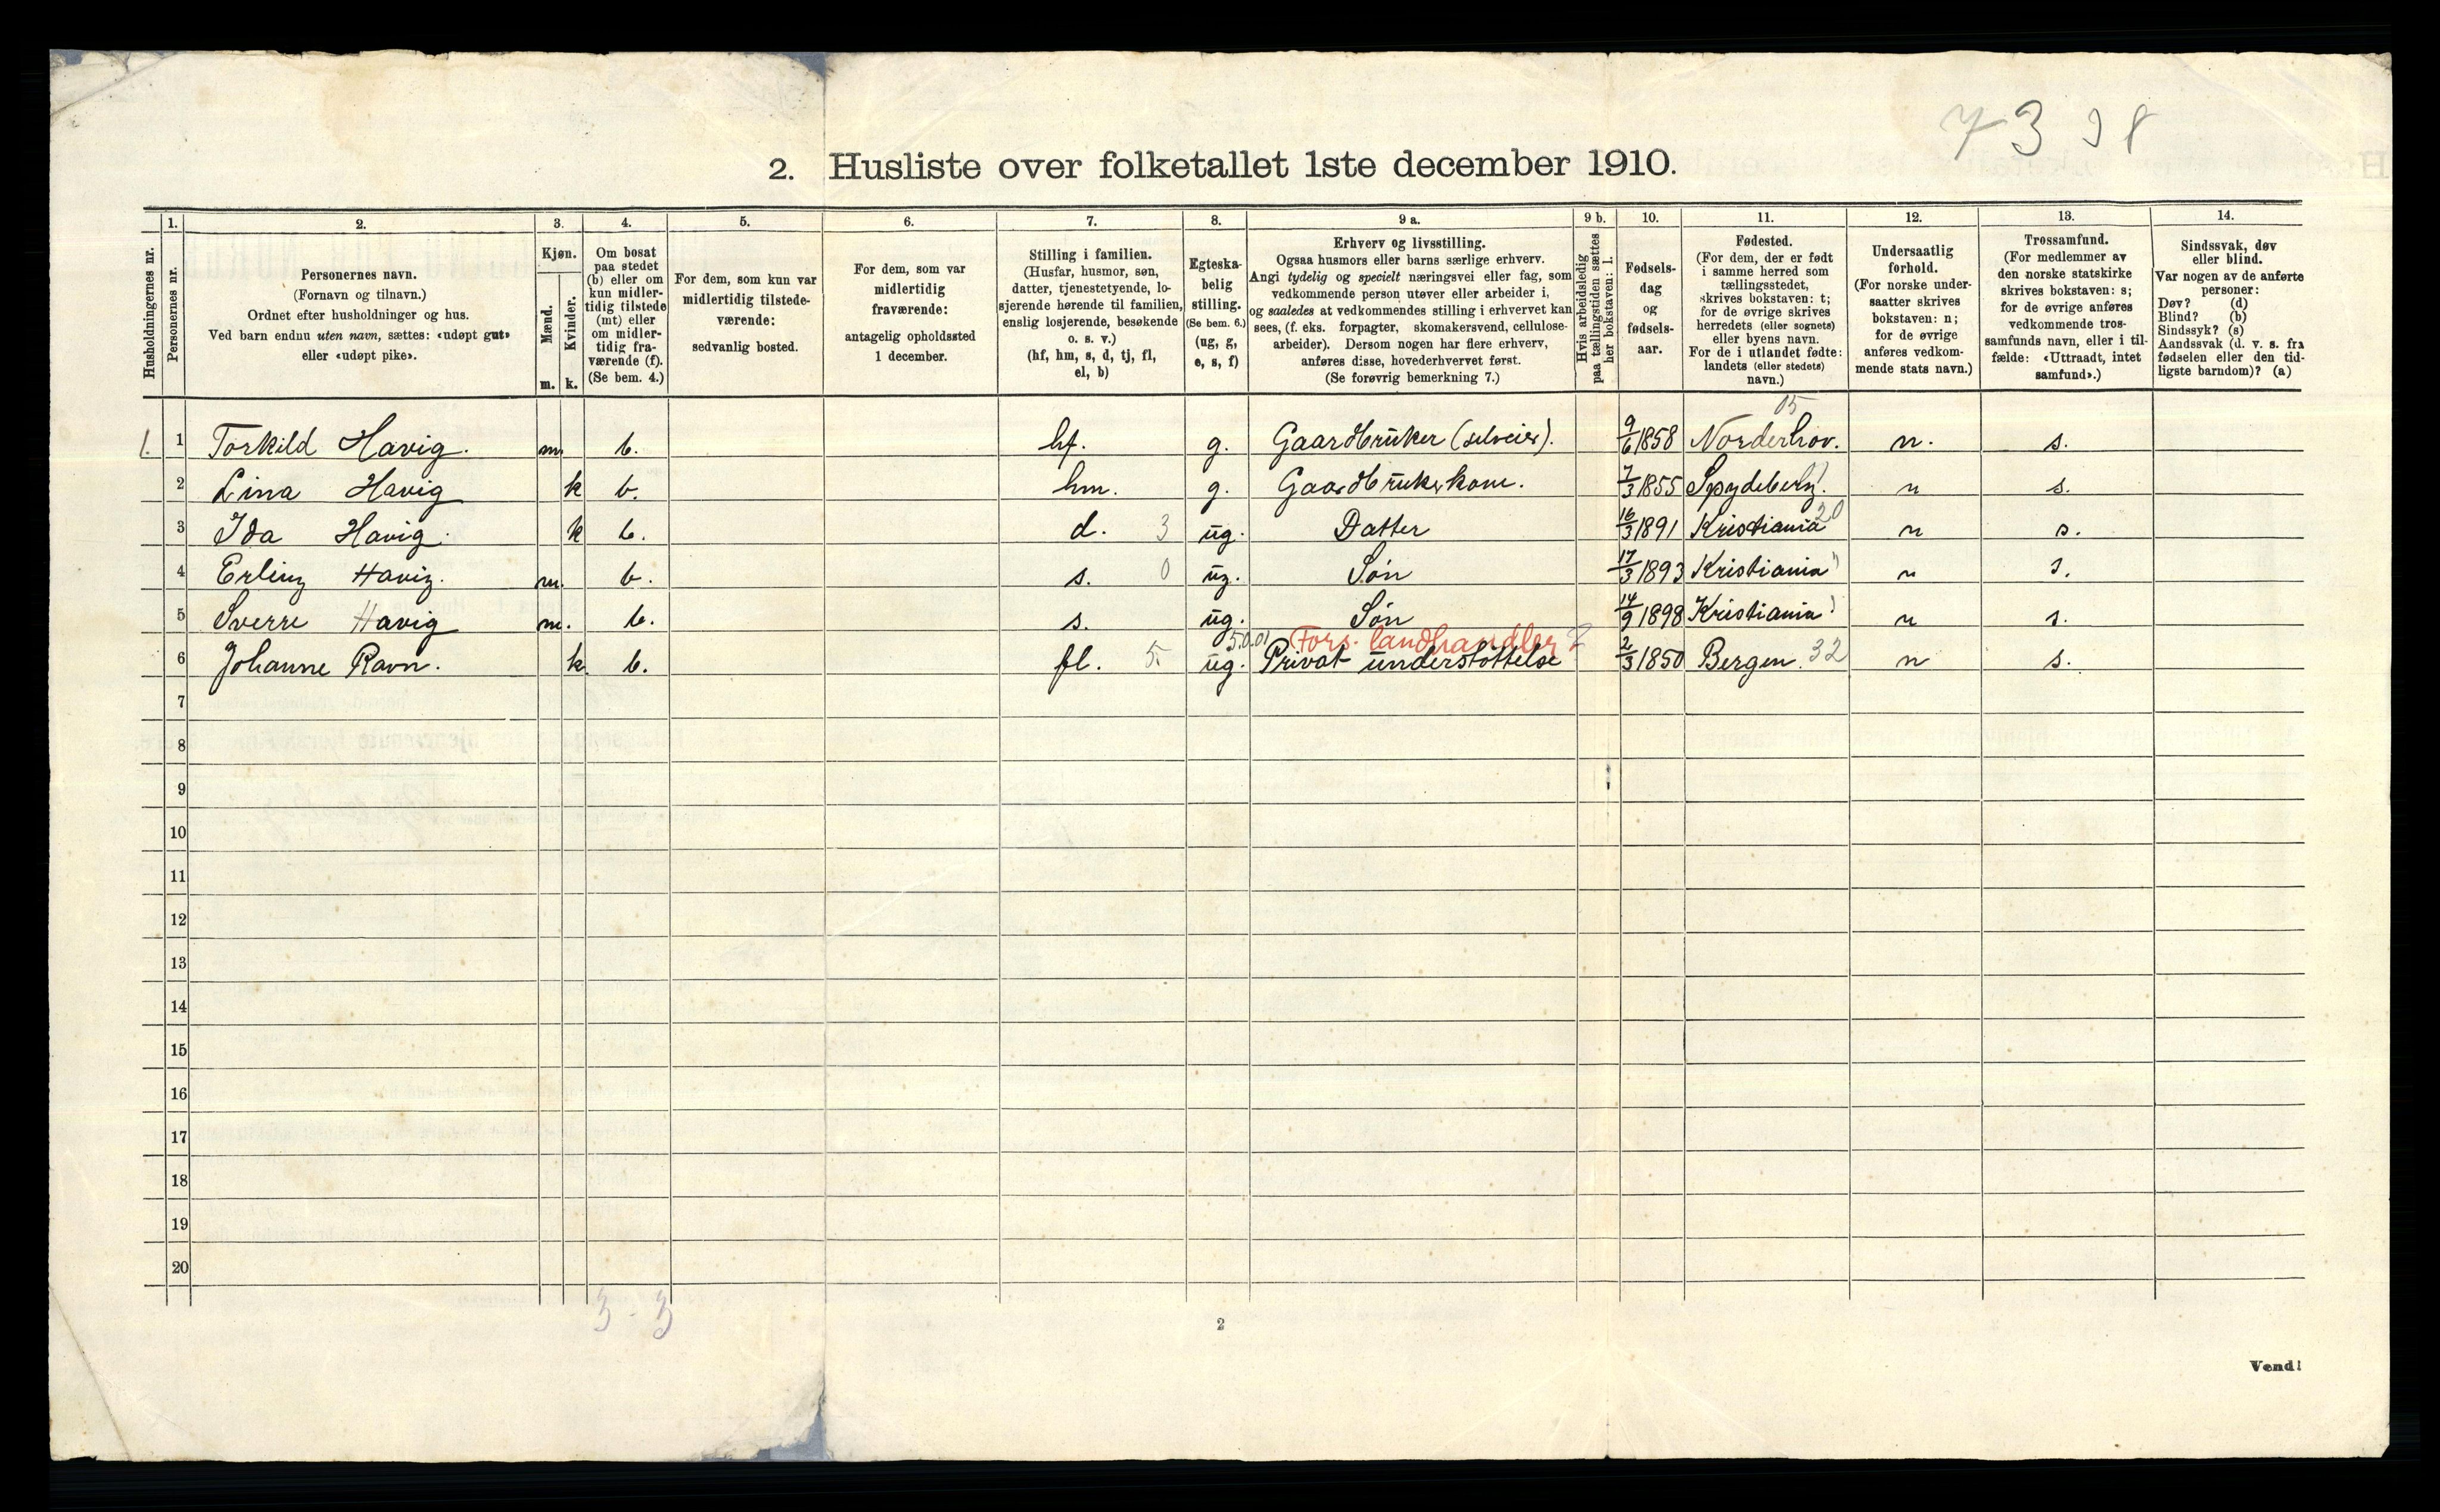 73 38
2. Husliste over folketallet 1ste december 1910.
1. 2. 3. 4. 5. 6. 7. 8. 9 a. 9 b. 10. 11. 12. 13. 14.
Husholdningernes nr.
Personernes nr.
Personernes navn.
(Fornavn og tilnavn.)
Ordnet efter husholdninger og hus.
Ved barn endnu uten navn, sættes: «udøpt gut»
eller «udøpt pike».
Kjøn.
Mænd.
Kvinder.
m. k.
Om bosat
paa stedet
(b) eller om
kun midler-
tidig tilstede
(mt) eller
om midler-
tidig fra-
værende (f).
(Se bem. 4.)
For dem, som kun var
midlertidig tilstede-
værende:
sedvanlig bosted.
For dem, som var
midlertidig
fraværende:
antagelig opholdssted
1 december.
Stilling i familien.
(Husfar, husmor, søn,
datter, tjenestetyende, lo-
sjerende hørende til familien,
enslig losjerende, besøkende
o. s. v.)
(hf, hm, s, d, tj, fl,
el, b)
Egteska-
belig
stilling.
(Se bem. 6.)
(ug, g,
e, s, f)
Erhverv og livsstilling.
Ogsaa husmors eller barns særlige erhverv.
Angi tydelig og specielt næringsvei eller fag, som
vedkommende person utøver eller arbeider i,
og saaledes at vedkommendes stilling i erhvervet kan
sees, (f. eks. forpagter, skomakersvend, cellulose-
arbeider). Dersom nogen har flere erhverv,
anføres disse, hovederhvervet først.
(Se forøvrig bemerkning 7.)
Hvis arbeidsledig
paa tællingstiden sættes
her bokstaven: l.
Fødsels-
dag
og
fødsels-
aar.
Fødested.
(For dem, der er født
i samme herred som
tællingsstedet,
skrives bokstaven: t;
for de øvrige skrives
herredets (eller sognets)
eller byens navn.
For de i utlandet fødte:
landets (eller stedets)
navn.)
Undersaatlig
forhold.
(For norske under-
saatter skrives
bokstaven: n;
for de øvrige
anføres vedkom-
mende stats navn.)
Trossamfund.
(For medlemmer av
den norske statskirke
skrives bokstaven: s;
for de øvrige anføres
vedkommende tros-
samfunds navn, eller i til-
fælde: «Uttraadt, intet
samfund».)
Sindssvak, døv
eller blind.
Var nogen av de anførte
personer:
Døv? (d)
Blind? (b)
Sindssyk? (s)
Aandssvak (d. v. s. fra
fødselen eller den tid-
ligste barndom)? (a)
05
1. 1 Torkild Havig. m b. hf. g. Gaardbruker (selveier). 9/6 1858 Norderhov. n. s.
2 Lina Havig k b. hm. g. Gaardbrukerkone. 7/3 1855 Spydeberg. n s.
3 Ida Havig. k b. d. 3 ug. Datter 16/3 1891 Kristiania 20 n s.
4 Erling Havig. m. b. s. 0 ug. Søn 17/3 1893 Kristiania " n s.
5 Sverre Havig m. b. s. ug. Søn 14/9 1898 Kristiania n s.
Fors. landhandler
6 Johanne Ravn. k. b. fl. 5. ug. Privat understøttelse 2/3 1850 Bergen. 32 n s.
7
8
9
10
11
12
13
14
15
16
17
18
19
20
3 - 3
2
Vend!